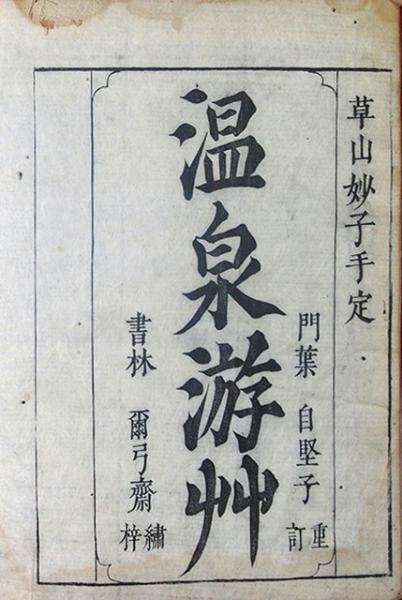 草山妙子手定
門葉 自堅子 重訂
温泉游艸
書林 爾弓齋 繡梓